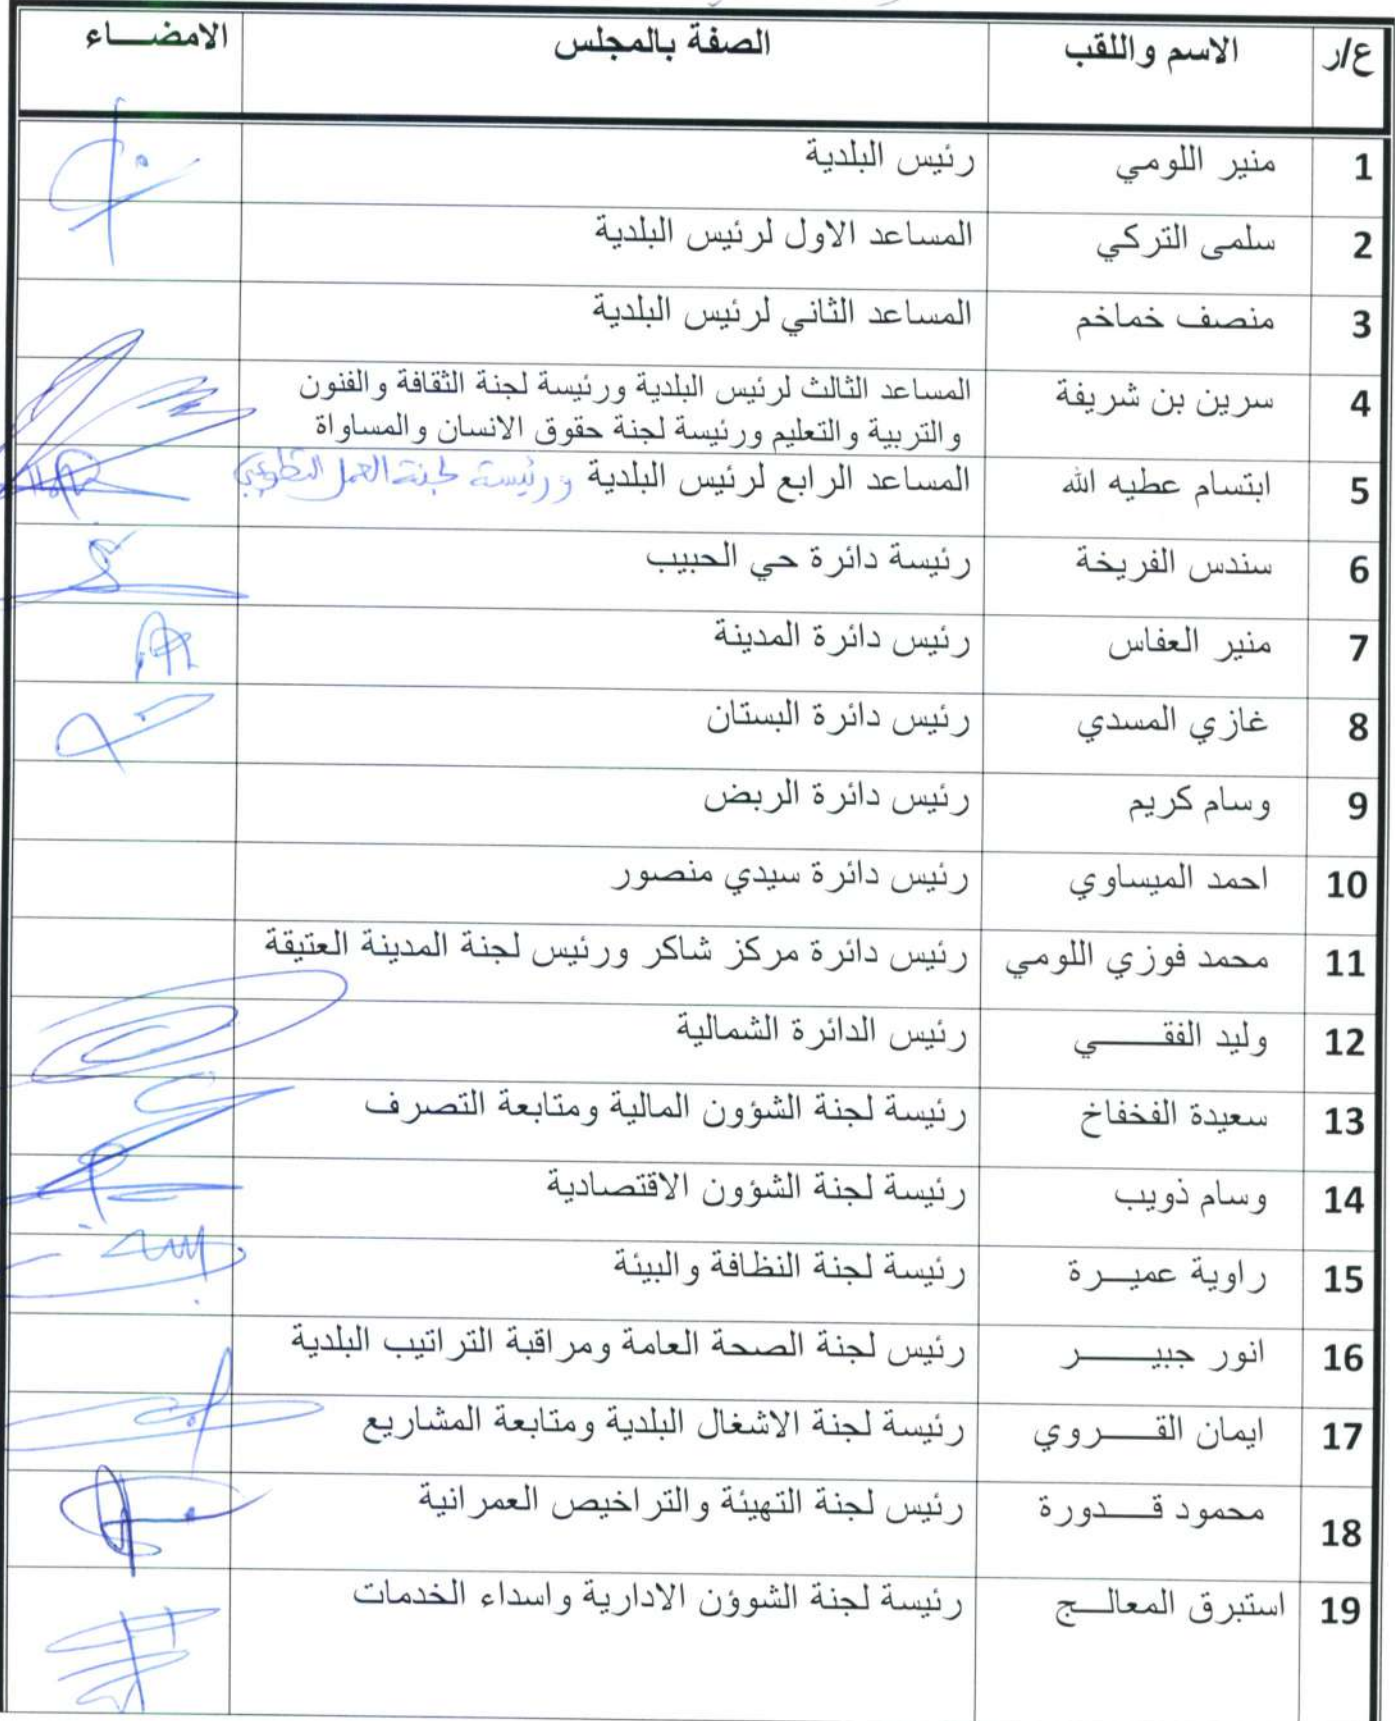 ع/ر الاسم واللقب الصفة بالمجلس الامضـــاء
1 منير اللومي رئيس البلدية
2 سلمى التركي المساعد الاول لرئيس البلدية
3 منصف خماخم المساعد الثاني لرئيس البلدية
4 سرين بن شريفة المساعد الثالث لرئيس البلدية ورئيسة لجنة الثقافة والفنون
والتربية والتعليم ورئيسة لجنة حقوق الانسان والمساواة
5 ابتسام عطيه الله المساعد الرابع لرئيس البلدية ورئيسة لجنة العمل التطوعي
6 سندس الفريخة رئيسة دائرة حي الحبيب
7 منير العفاس رئيس دائرة المدينة
8 غازي المسدي رئيس دائرة البستان
9 وسام كريم رئيس دائرة الربض
10 احمد الميساوي رئيس دائرة سيدي منصور
11 محمد فوزي اللومي رئيس دائرة مركز شاكر ورئيس لجنة المدينة العتيقة
12 وليد الفقـــــي رئيس الدائرة الشمالية
13 سعيدة الفخفاخ رئيسة لجنة الشؤون المالية ومتابعة التصرف
14 وسام ذويب رئيسة لجنة الشؤون الاقتصادية
15 راوية عميـــرة رئيسة لجنة النظافة والبيئة
16 انور جبيـــــر رئيس لجنة الصحة العامة ومراقبة التراتيب البلدية
17 ايمان القــــروي رئيسة لجنة الاشغال البلدية ومتابعة المشاريع
18 محمود قــــدورة رئيس لجنة التهيئة والتراخيص العمرانية
19 استبرق المعالـــج رئيسة لجنة الشوؤن الادارية واسداء الخدمات